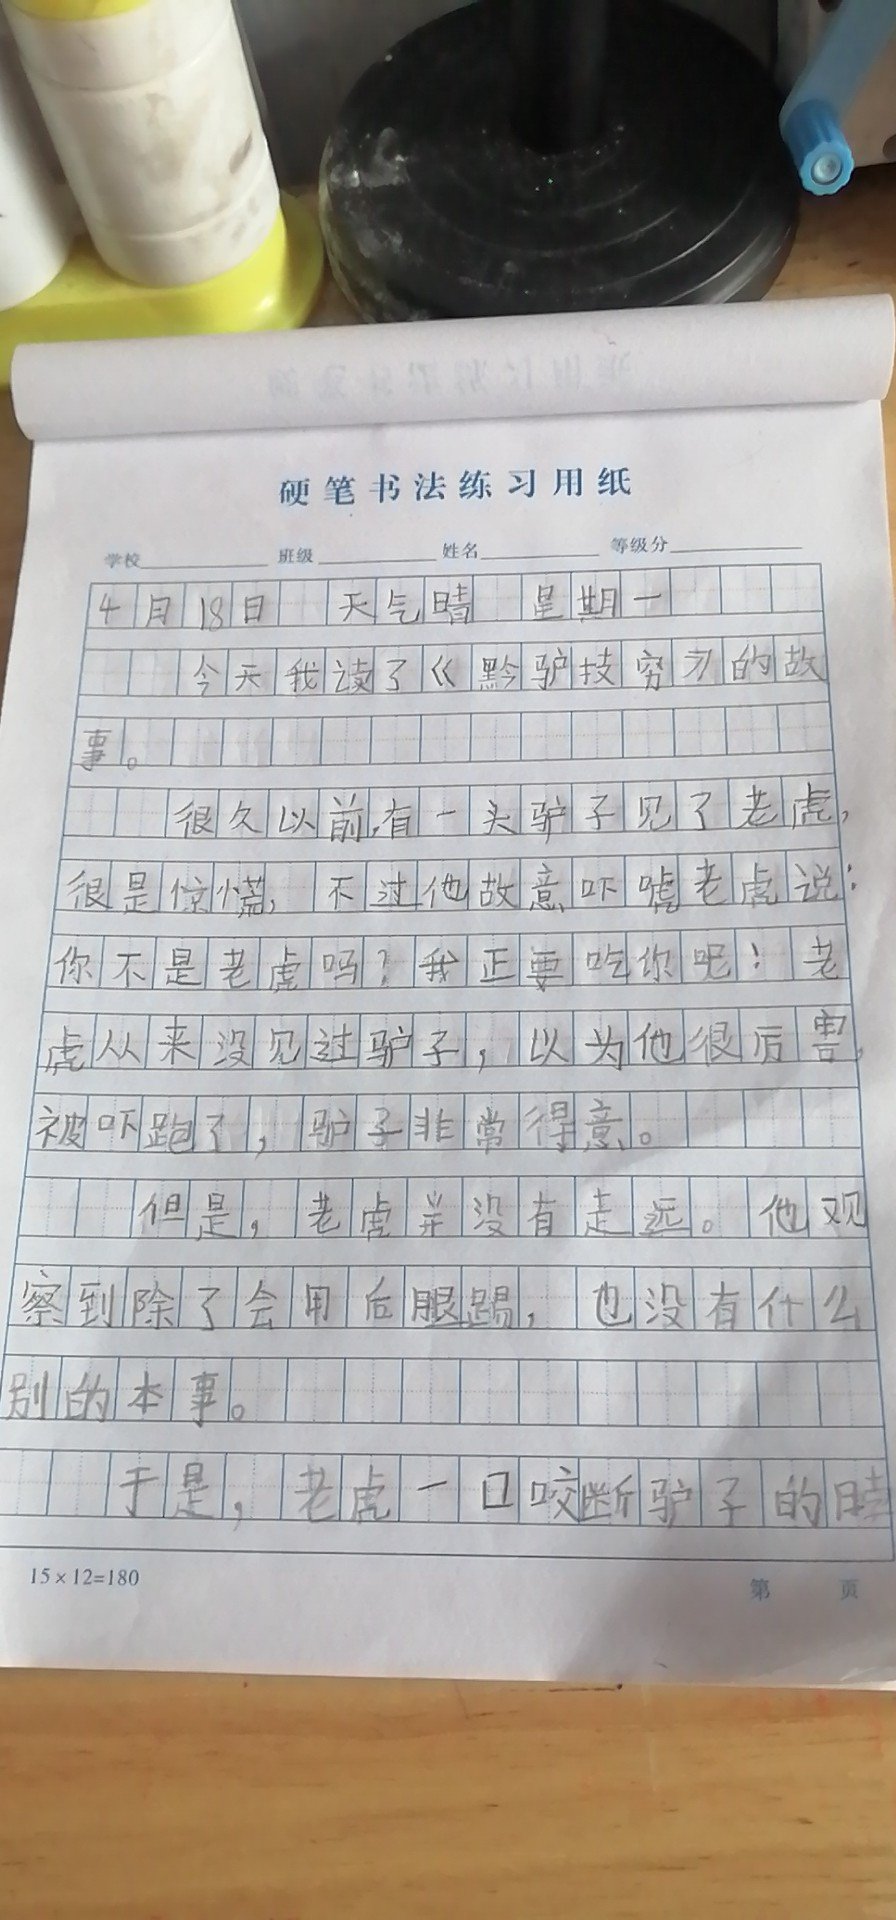 硬笔书法练习用纸
学校 班级 姓名 等级分
4月18日 天气晴 星期一
今天我读了《黔驴技穷》的故
事。
很久以前,有一头驴子见了老虎,
很是惊慌,不过他故意吓唬老虎说:
你不是老虎吗?我正要吃你呢!老
虎从来没见过驴子,以为他很厉害,
被吓跑了,驴子非常得意。
但是,老虎并没有走远。他观
察到除了会用后腿踢,也没有什么
别的本事。
于是,老虎一口咬断驴子的
15×12=180
第 页